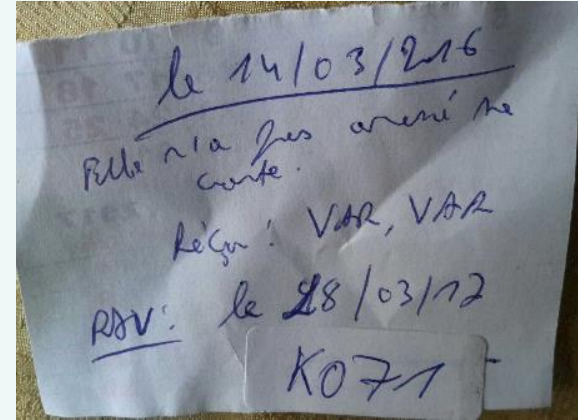 le 14/03/2016
Elle n'a pas amené sa
carte.
Réçu : VAR, VAR
RDV: le 28/03/17
K071